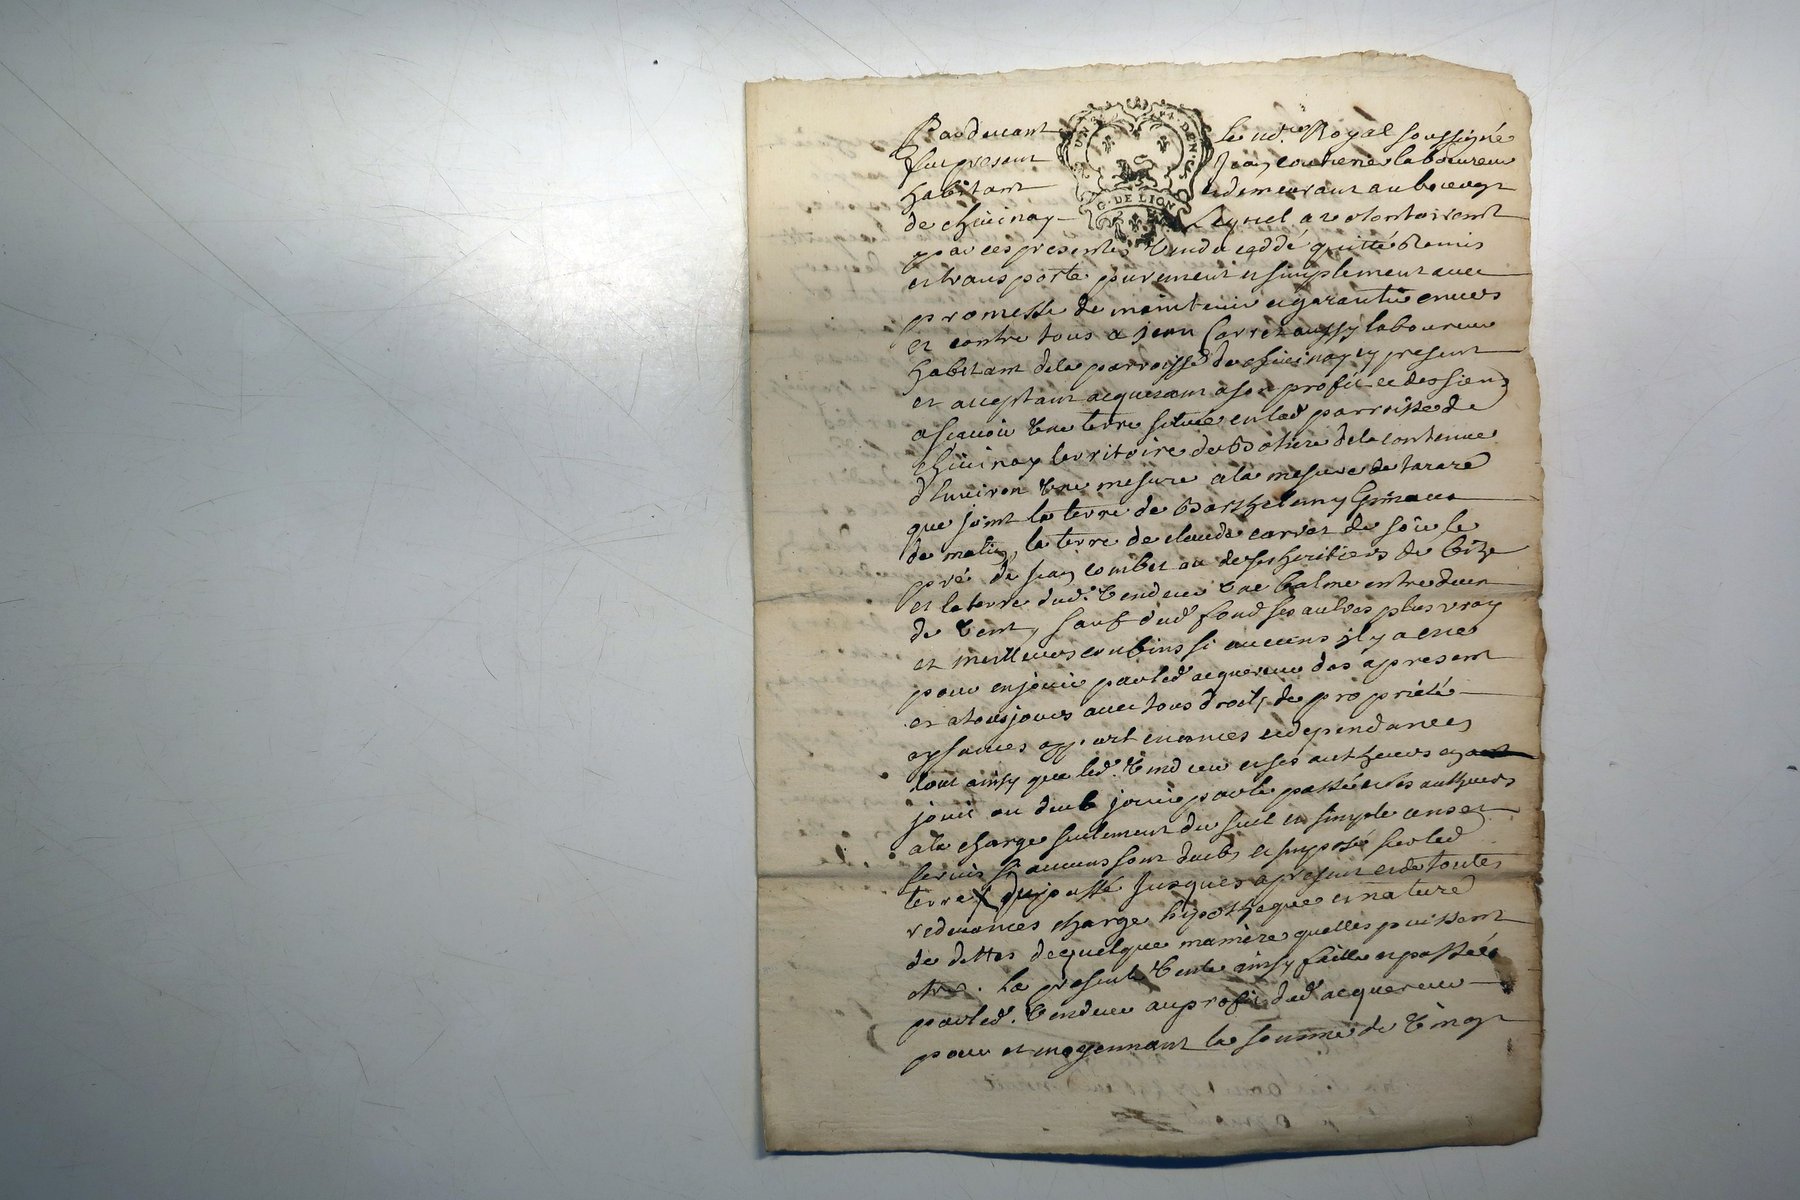 Pardevant le no.re Royal soussigné
fut present Jean couherie laboureur
habitant et demeurant au bourgt
de chivinay Lequel a volontairemt
par ces presentes Vendu ceddé quitté Remis
et transporté purement et simplement avec
promesse de maintenir et garantir envers
et contre tous a jean Carret aussy laboureur
habitant dela parroisse de chivinay cy present
et acceptant acquerant a son profit et des siens
ascavoir Une terre située en lad parroisse de
chivinay territoire de la contenue
d'Environ Une mesure a la mesure de tarare
que joint la terre de Barthelemy
de matin, la terre de claude carret de soir le
pré de jean combet ou de ses heritiers de bize
et la terre dud. Vendeur Une balme entre deux
de Vent, sauf dud fond ses autres plus vray
et meilleurs confins si aucuns jl y a
pour en jouir par led acquereur des a present
et a tousjours avec tous droits de propriété
appartenances et dependances
tout ainsy que led. Vendeur et ses autheurs
jouir ou deub jouir par le passé
a la charge seulement du seul et simple cens et
servis si aucuns sont deubs et imposé sur led
terre du passé Jusques a present et de toutes
redevances charge hipotheque et nature
de dettes de quelque maniere quelles puissent
etre. La presente Vente ainsy faitte et passée
par led. Vendeur au profit dud acquereur
pour et moyennant la somme de Vingt
G. DE LION